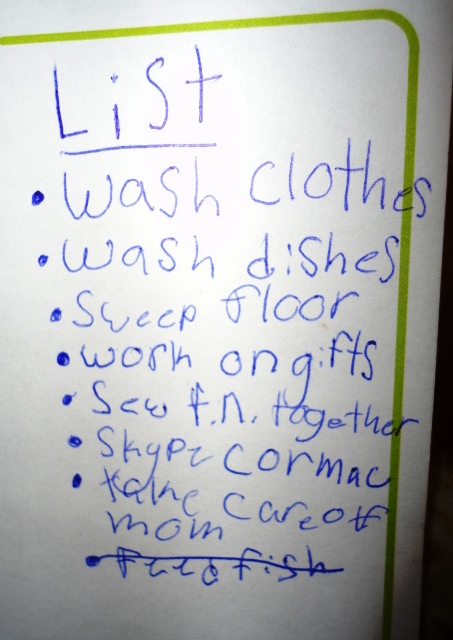 List
• Wash clothes
• Wash dishes
• Sweep floor
• work on gifts
• Sew f.n. together
• Skype Cormac
• take care of
mom
• Feed fish